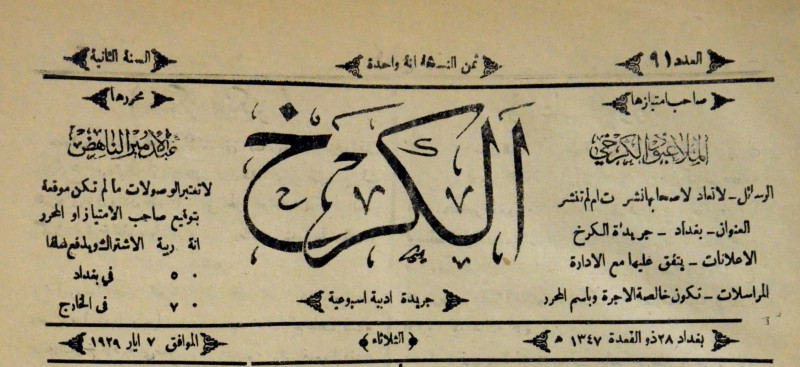 العدد ٩١
ثمن النسخة انة واحدة
السنة الثانية
صاحب امتيازها
الملا عبود الكرخي
الرسائل – لا تعاد لاصحابها نشرت ام لم تنشر
العنوان – بغداد – جريدة الكرخ
الاعلانات – يتفق عليها مع الادارة
المراسلات – تكون خالصة الاجرة وباسم المحرر
الكرخ
جريدة ادبية اسبوعية
محررها
عبد الامير الناهض
لا تعتبر الوصولات ما لم تكن موقعة
بتوقيع صاحب الامتياز او المحرر
الاشتراك ويدفع سلفا
٥٠ في بغداد
٧٠ في الخارج
بغداد ٢٨ ذو القعدة ١٣٤٧ ھ
(الثلاثاء)
الموافق ٧ ايار ١٩٢٩